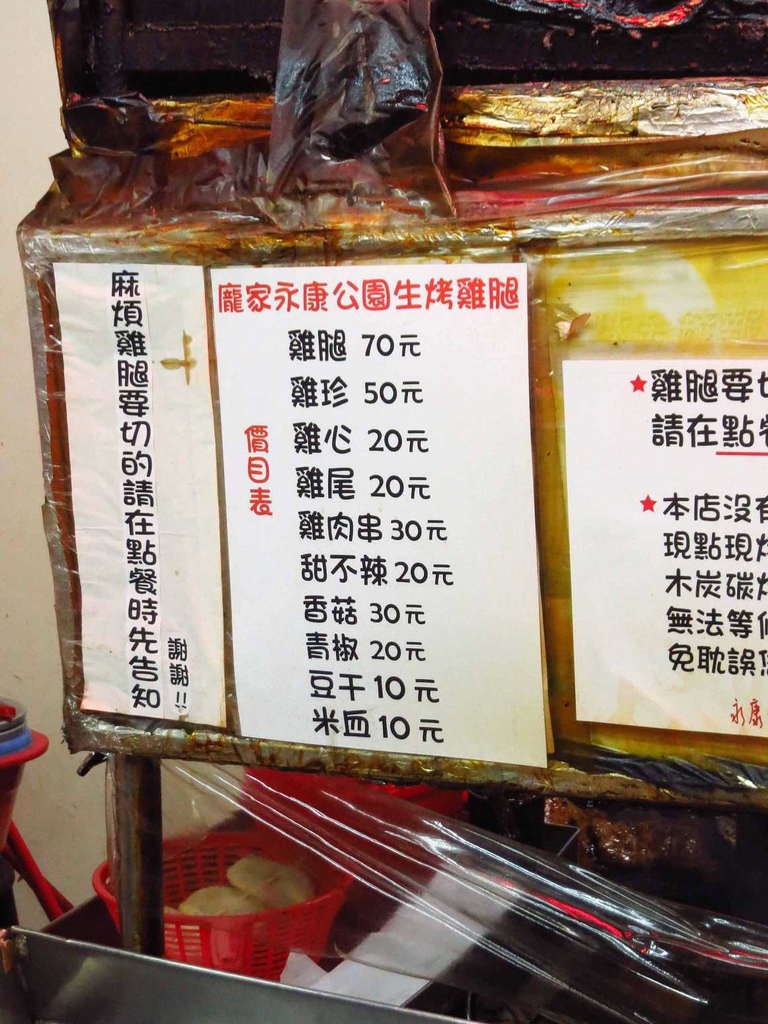 麻煩雞腿要切的請在點餐時先告知
謝謝!!
龐家永康公園生烤雞腿
價目表
雞腿 70元
雞珍 50元
雞心 20元
雞尾 20元
雞肉串 30元
甜不辣 20元
香菇 30元
青椒 20元
豆干 10元
米血 10元
★雞腿要切
請在點餐
★本店沒有
現點現烤
木炭碳烤
無法等候
免耽誤您
永康